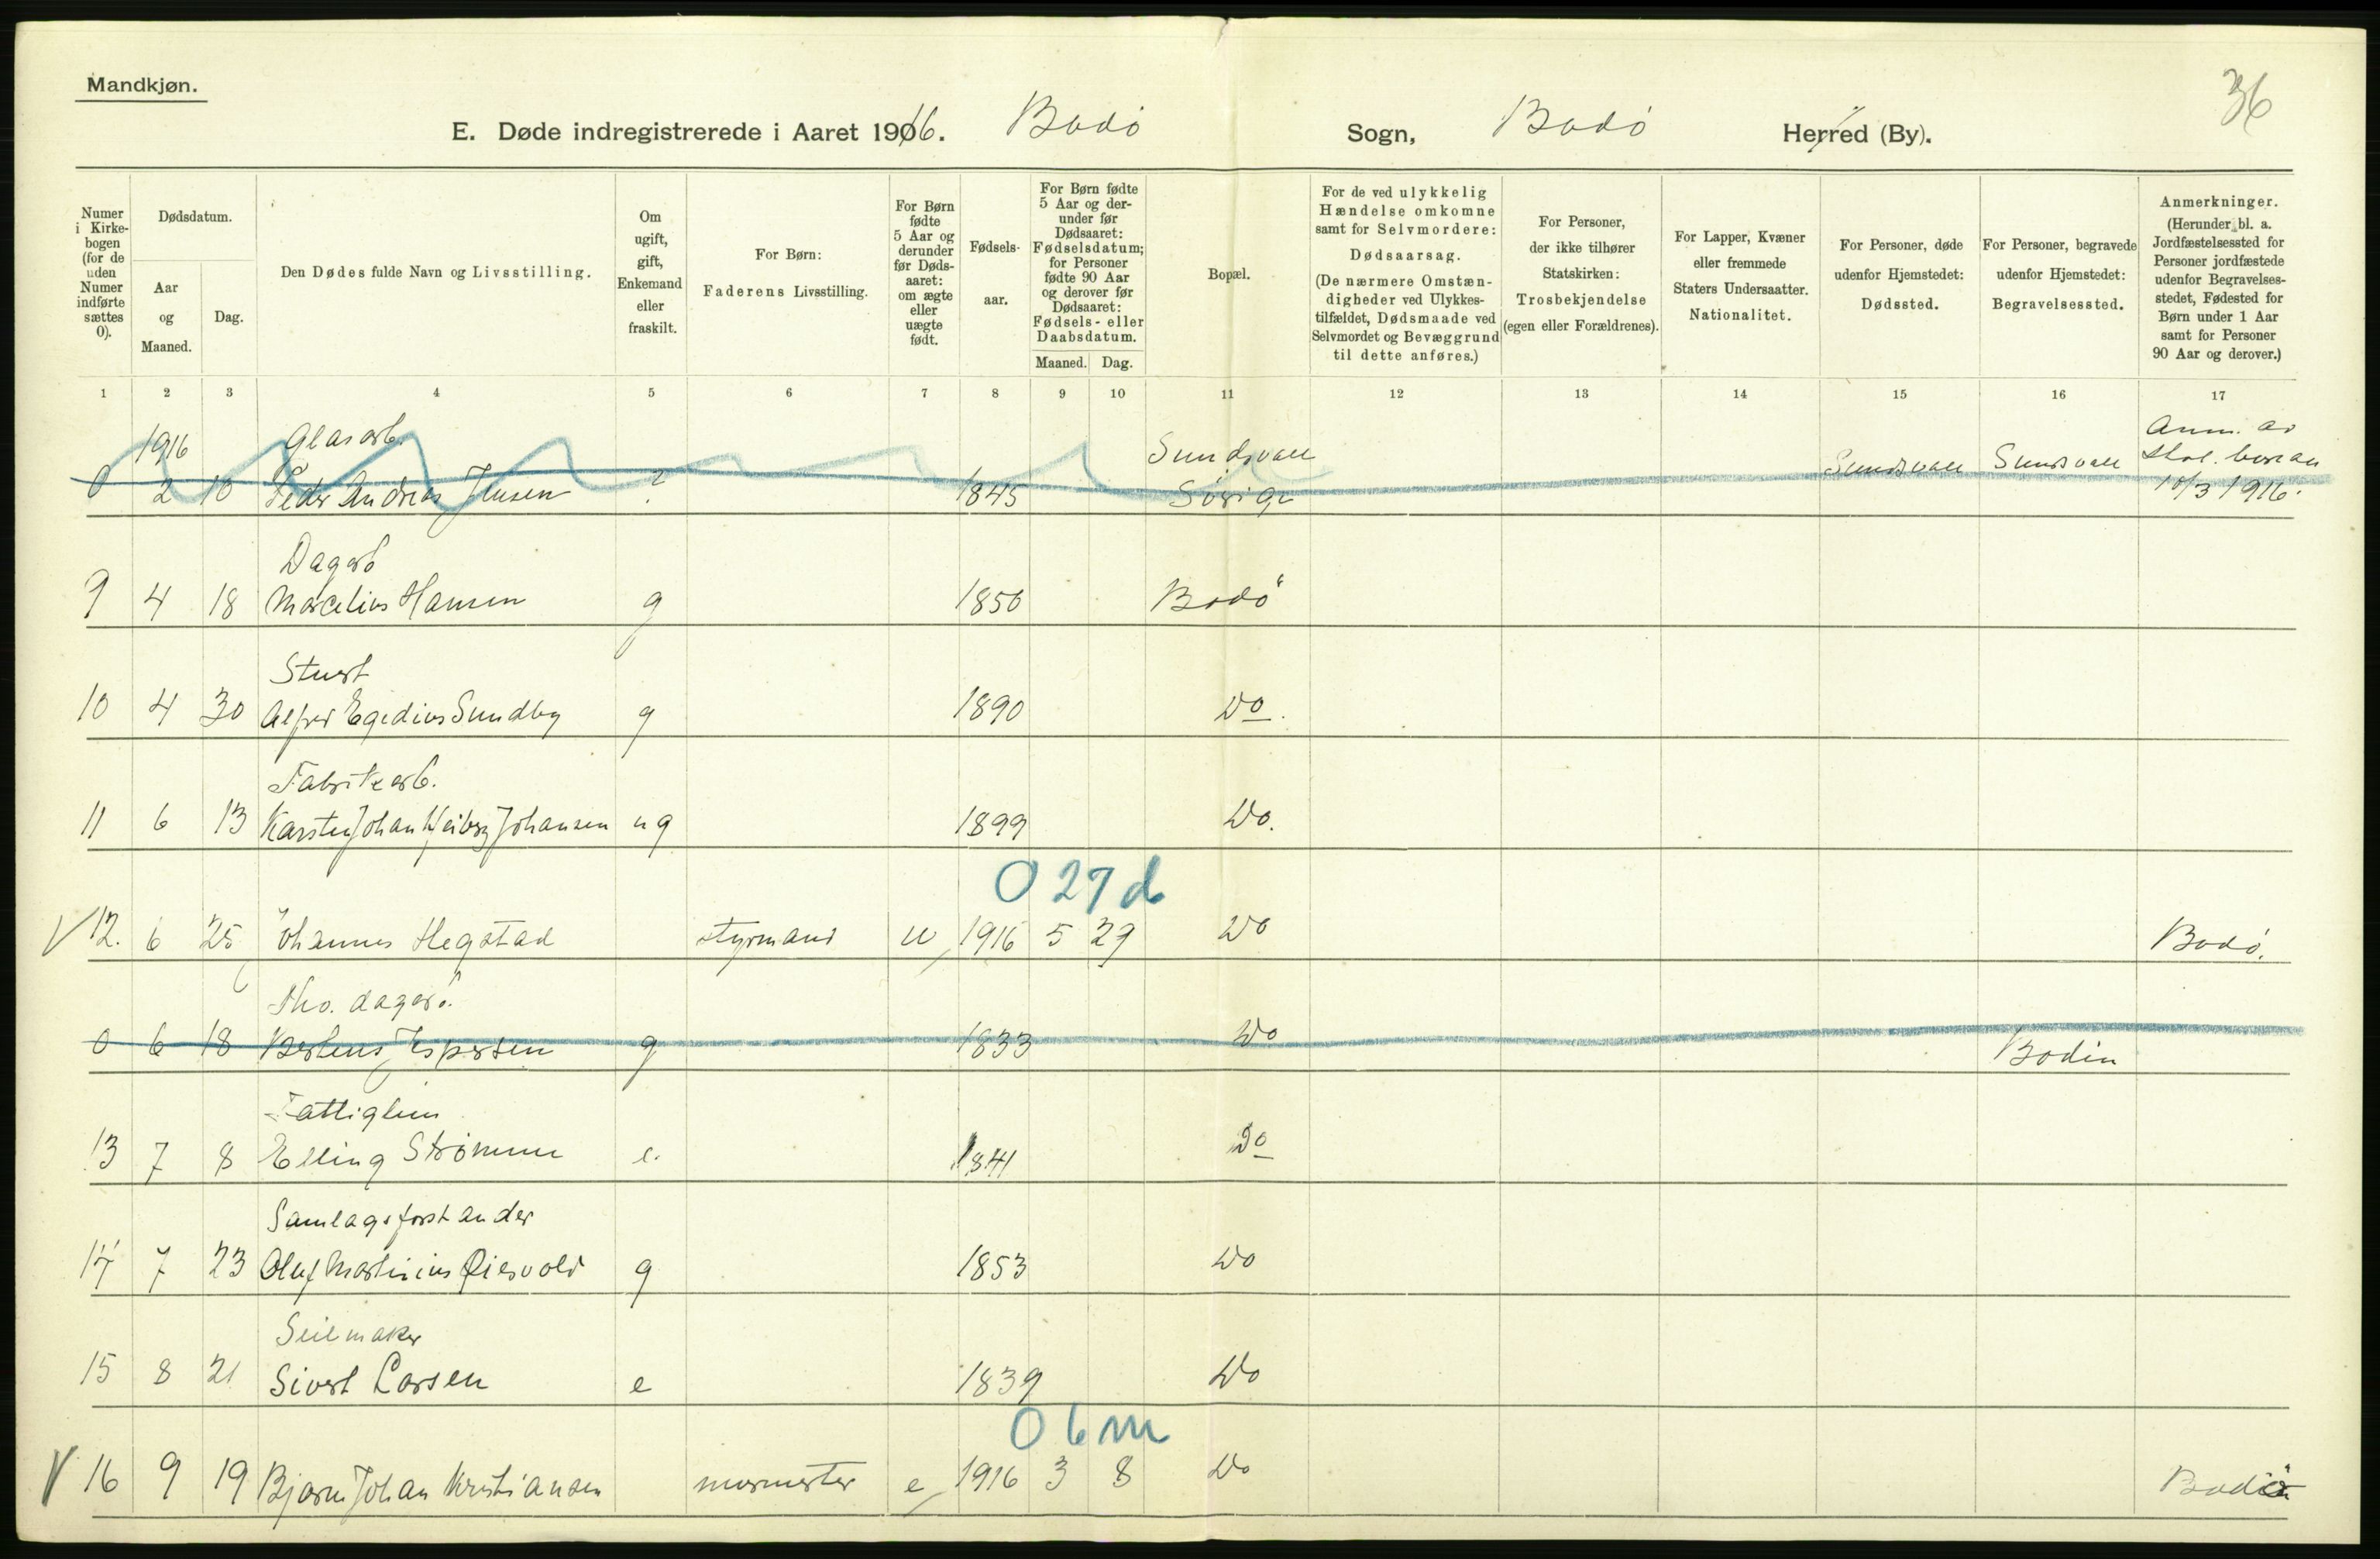 Mandkjøn.
36
E. Døde indregistrerede i Aaret 1916. Bodø Sogn, Bodø Herred (By).
Numer i Kirkebogen (for de uden Numer indførte sættes 0).
Dødsdatum.
Aar og Maaned.
Dag.
Den Dødes fulde Navn og Livsstilling.
Om ugift, gift, Enkemand eller fraskilt.
For Børn: Faderens Livsstilling.
For Børn fødte 5 Aar og derunder før Dødsaaret: om ægte eller uægte født.
Fødselsaar.
For Børn fødte 5 Aar og derunder før Dødsaaret: Fødselsdatum; for Personer fødte 90 Aar og derover før Dødsaaret: Fødsels- eller Daabsdatum.
Maaned. Dag.
Bopæl.
For de ved ulykkelig Hændelse omkomne samt for Selvmordere: Dødsaarsag. (De nærmere Omstændigheder ved Ulykkestilfældet, Dødsmaade ved Selvmordet og Bevæggrund til dette anføres.)
For Personer, der ikke tilhører Statskirken: Trosbekjendelse (egen eller Forældrenes).
For Lapper, Kvæner eller fremmede Staters Undersaatter. Nationalitet.
For Personer, døde udenfor Hjemstedet: Dødssted.
For Personer, begravede udenfor Hjemstedet: Begravelsessted.
Anmerkninger. (Herunder bl. a. Jordfæstelsessted for Personer jordfæstede udenfor Begravelsesstedet, Fødested for Børn under 1 Aar samt for Personer 90 Aar og derover.)
1 2 3 4 5 6 7 8 9 10 11 12 13 14 15 16 17
1916 Glasarb. Sundsvall Anm. av
0 2 10 Peder Andreas Jensen ? 1845 Sverige Sundsvall Sundsvall 10/3 1916.
Dagarb
9 4 18 Marcelius Hansen g 1850 Bodø
Stuert
10 4 30 Alfred Egedius Sundby g 1890 Do.
Fabrikarb.
11 6 13 Karsten Johan Heiberg Johansen ug 1899 Do.
0 27 d
V 12. 6 25 Johannes Hegstad styrmand u 1916 5 29 Do Bodø.
fho. dagarb.
0 6 18 Jespersen g 1833 Do Bodin
Fattiglem
13 7 8 Elling Strømme e. 1841 Do
Samlagsforstander
14 7 23 Oluf Martinius g 1853 Do
Seilmaker
15 8 21 Sivert Larsen e 1839 Do
0 6 m
V 16 9 19 Bjarne Johan Kristiansen murmester e 1916 3 8 Do Bodø